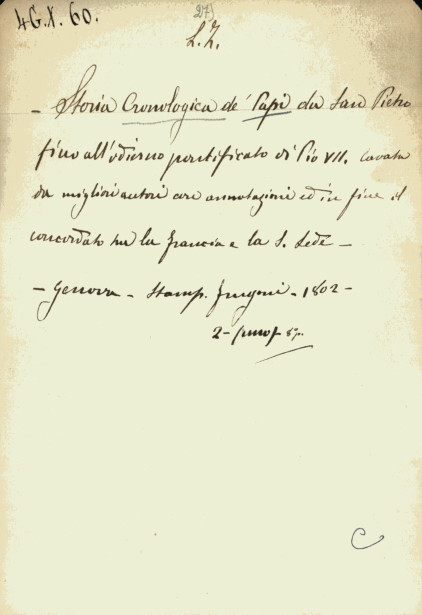 4G.X.60.
279
L.Z.
- Storia Cronologica de' Papi da San Pietro
fino all'odierno pontificato di Pio VII. cavata
da migliori autori con annotazioni ed in fine il
concordato tra la Francia e la S. Sede -
- Genova - Stamp. Frugoni - 1802 -
2-
C